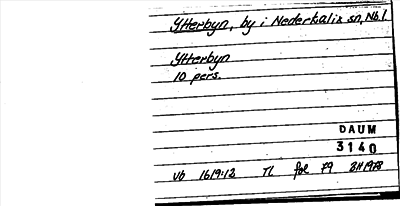 Ytterbyn, by i Nederkalix sn, Nb.l.
Ytterbyn
10 pers.
DAUM
3140
Vb 1619:12 TL fol 79